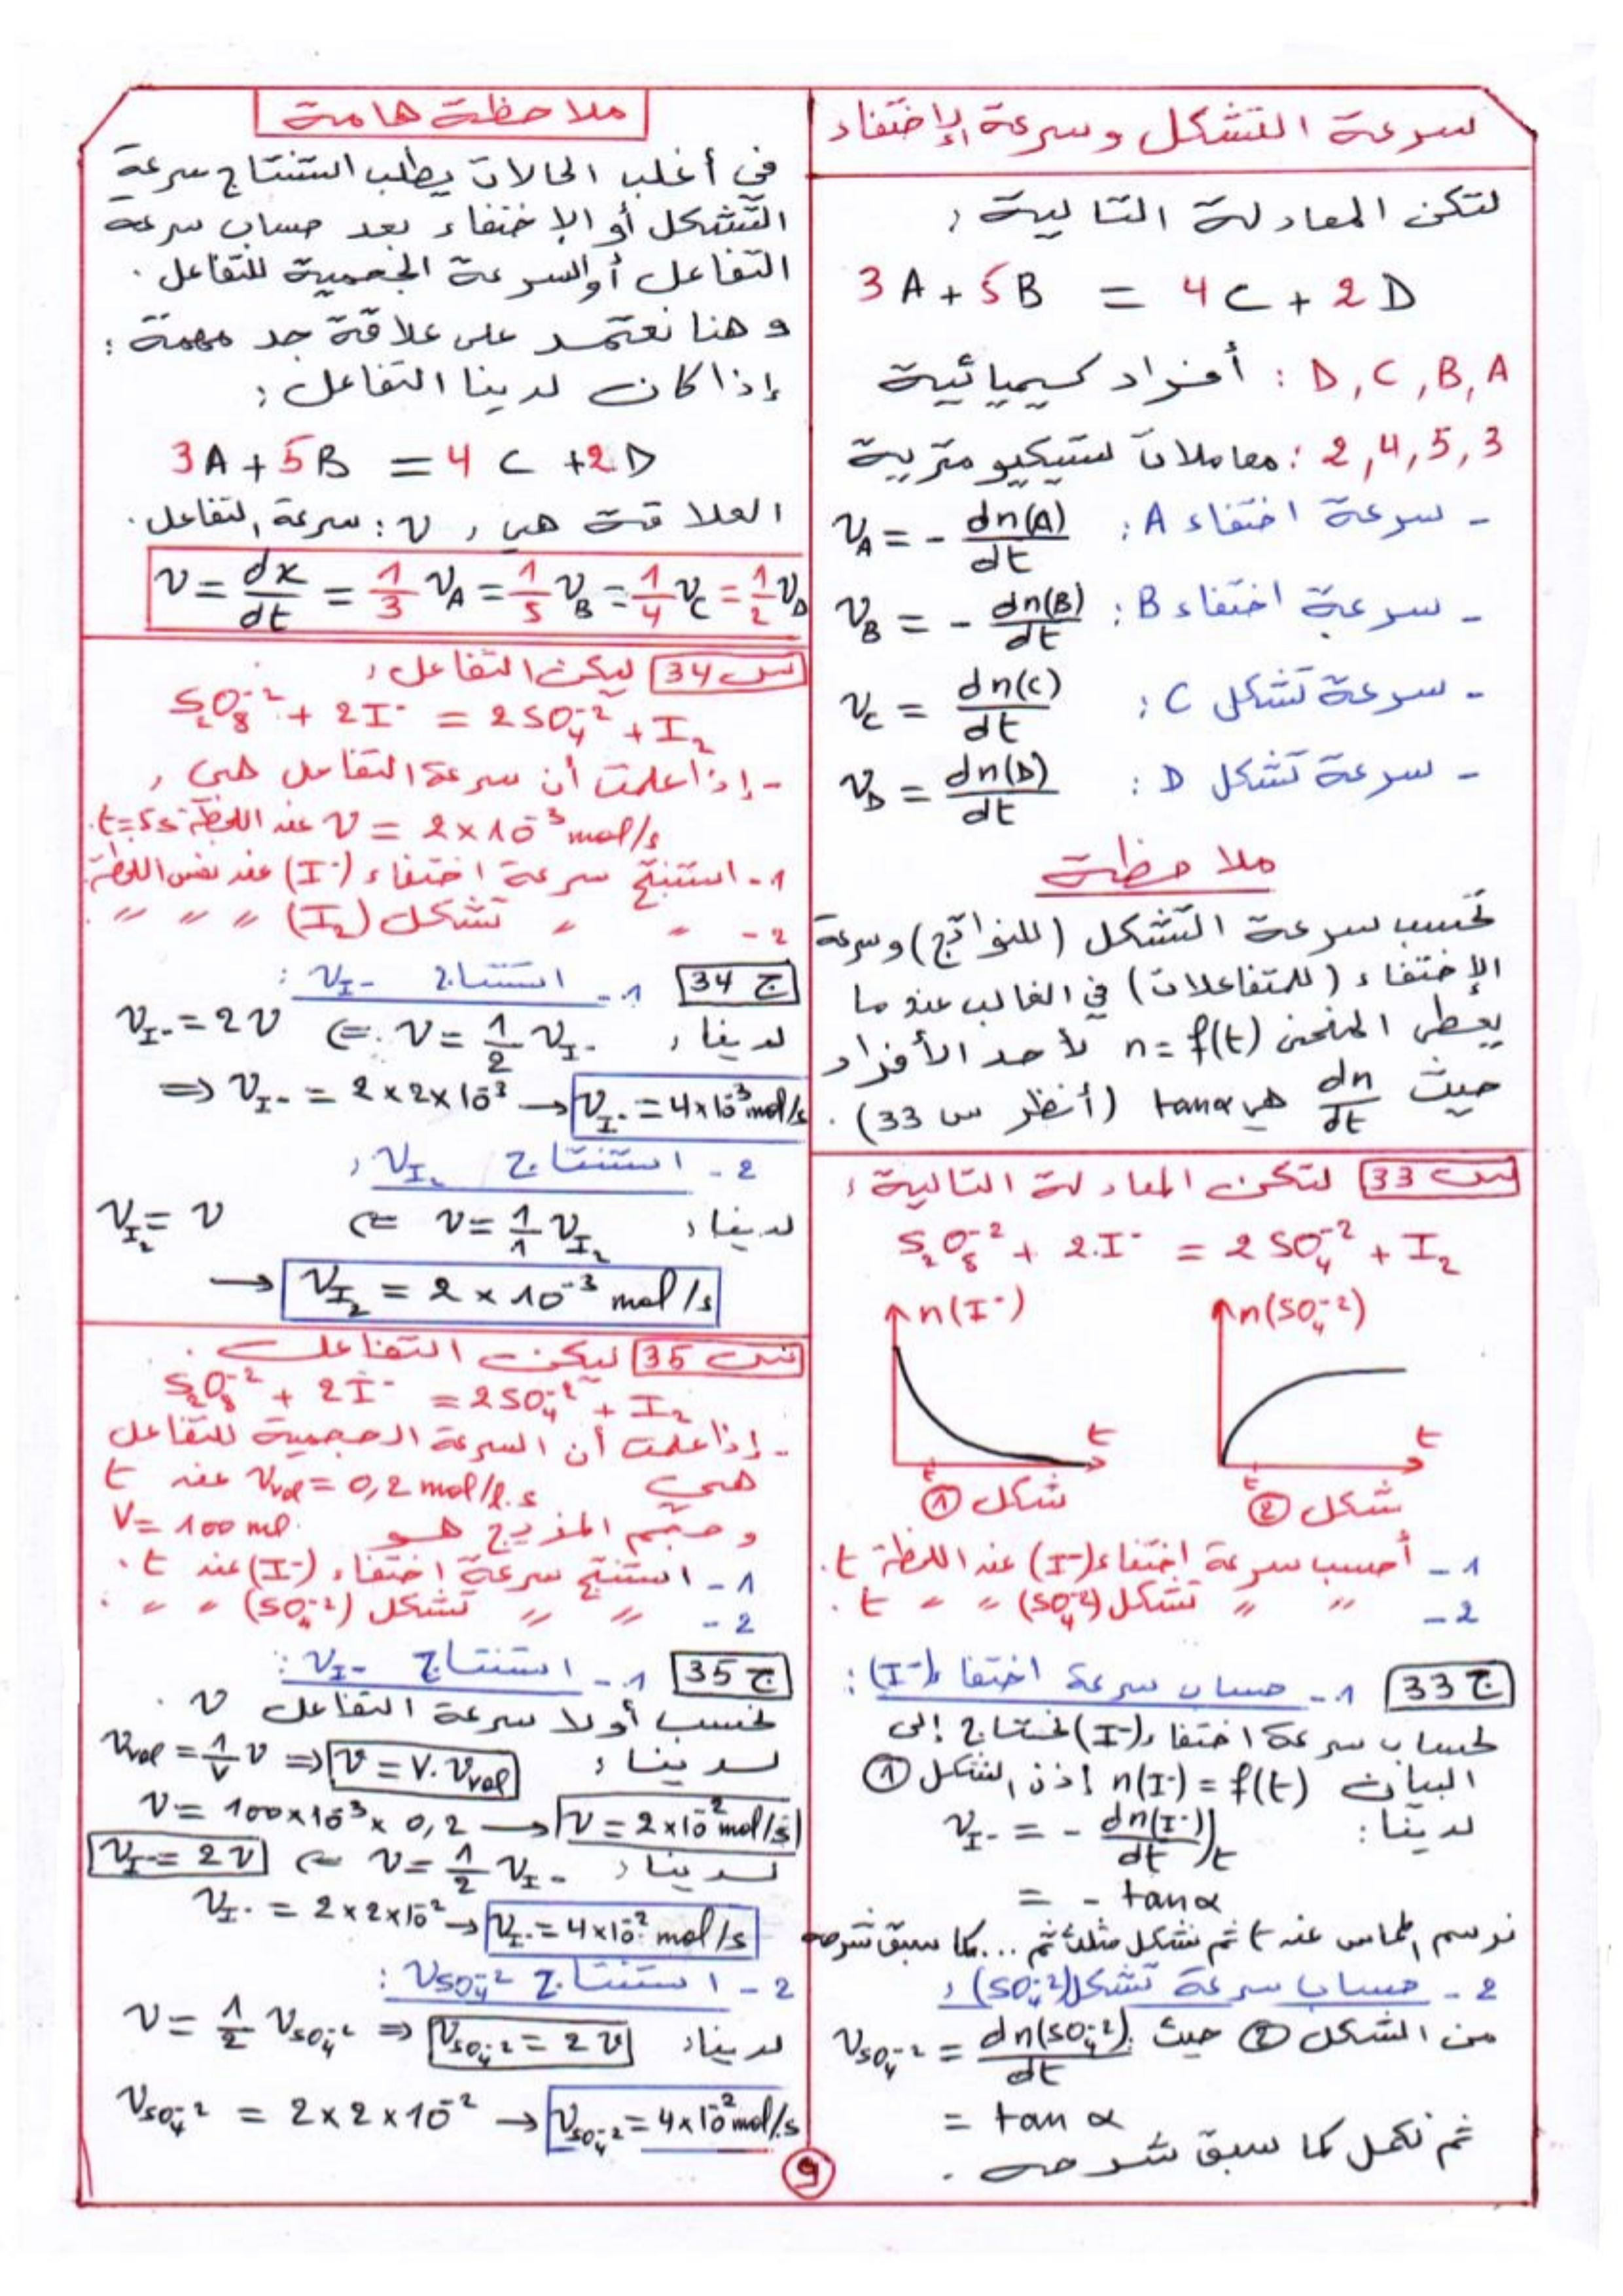 سرعة التشكل وسرعة الإختفاء
لتكن المعادلة التالية :
3A + 5B = 4C + 2D
D, C, B, A : أفراد كيميائية
2, 4, 5, 3 : معاملات ستيكيومترية
- سرعة اختفاء A : v_A = - dn(A)/dt
- سرعة اختفاء B : v_B = - dn(B)/dt
- سرعة تشكل C : v_C = dn(C)/dt
- سرعة تشكل D : v_D = dn(D)/dt
ملاحظة
تحسب سرعة التشكل (للنواتج) وسرعة
الإختفاء (للمتفاعلات) في الغالب عندما
يعطى المنحنى n = f(t) لأحد الأفراد
حيث dn/dt هي tanα (أنظر س 33) .
س 33 لتكن المعادلة التالية :
S₂O₈⁻² + 2.I⁻ = 2SO₄⁻² + I₂
n(I⁻) t t
شكل ①
n(SO₄⁻²) t t
شكل ②
1 - أحسب سرعة إختفاء (I⁻) عند اللحظة t .
2 - " " تشكل (SO₄⁻²) " " t .
ج 33 1 - حساب سرعة اختفاء (I⁻) :
لحساب سرعة اختفاء (I⁻) نحتاج إلى
البيان n(I⁻) = f(t) إذن الشكل ①
لدينا : v_I⁻ = - dn(I⁻)/dt )t
= - tanα
نرسم المماس عند t ثم نشكل مثلث ثم ... كما سبق شرحه
2 - حساب سرعة تشكل (SO₄⁻²) :
من الشكل ② حيث v_SO₄⁻² = dn(SO₄⁻²)/dt
= tan α
ثم نكمل كما سبق شرحه .
ملاحظة هامة
في أغلب الحالات يطلب استنتاج سرعة
التشكل أو الإختفاء بعد حساب سرعة
التفاعل أو السرعة الحجمية للتفاعل .
و هنا نعتمد على علاقة جد مهمة :
إذا كان لدينا التفاعل :
3A + 5B = 4C + 2D
العلاقة هي , v : سرعة التفاعل .
v = dx/dt = 1/3 v_A = 1/5 v_B = 1/4 v_C = 1/2 v_D
س 34 ليكن التفاعل :
S₂O₈⁻² + 2I⁻ = 2SO₄⁻² + I₂
- إذا علمت أن سرعة التفاعل هي :
v = 2 × 10⁻³ mol/s عند اللحظة t = 5s .
1 - استنتج سرعة اختفاء (I⁻) عند نفس اللحظة .
2 - " " تشكل (I₂) " " " .
ج 34 1 - استنتاج v_I⁻ :
لدينا : v = 1/2 v_I⁻ ⇐ v_I⁻ = 2v
⇒ v_I⁻ = 2 × 2 × 10⁻³ → v_I⁻ = 4 × 10⁻³ mol/s
2 - استنتاج v_I₂ :
لدينا : v = 1/1 v_I₂ ⇐ v_I₂ = v
→ v_I₂ = 2 × 10⁻³ mol/s
س 35 ليكن التفاعل .
S₂O₈⁻² + 2I⁻ = 2SO₄⁻² + I₂
- إذا علمت أن السرعة الحجمية للتفاعل
هي v_vol = 0,2 mol/l.s عند t
و حجم المزيج هو V = 100 ml .
1 - استنتج سرعة اختفاء (I⁻) عند t .
2 - " " تشكل (SO₄⁻²) " " .
ج 35 1 - استنتاج v_I⁻ :
نحسب أولا سرعة التفاعل v .
لدينا : v_vol = 1/V v ⇒ v = V.v_vol
v = 100 × 10⁻³ × 0,2 → v = 2 × 10⁻² mol/s
لدينا : v = 1/2 v_I⁻ ⇐ v_I⁻ = 2v
v_I⁻ = 2 × 2 × 10⁻² → v_I⁻ = 4 × 10⁻² mol/s
2 - استنتاج v_SO₄⁻² :
لدينا : v = 1/2 v_SO₄⁻² ⇒ v_SO₄⁻² = 2v
v_SO₄⁻² = 2 × 2 × 10⁻² → v_SO₄⁻² = 4 × 10⁻² mol/s
9